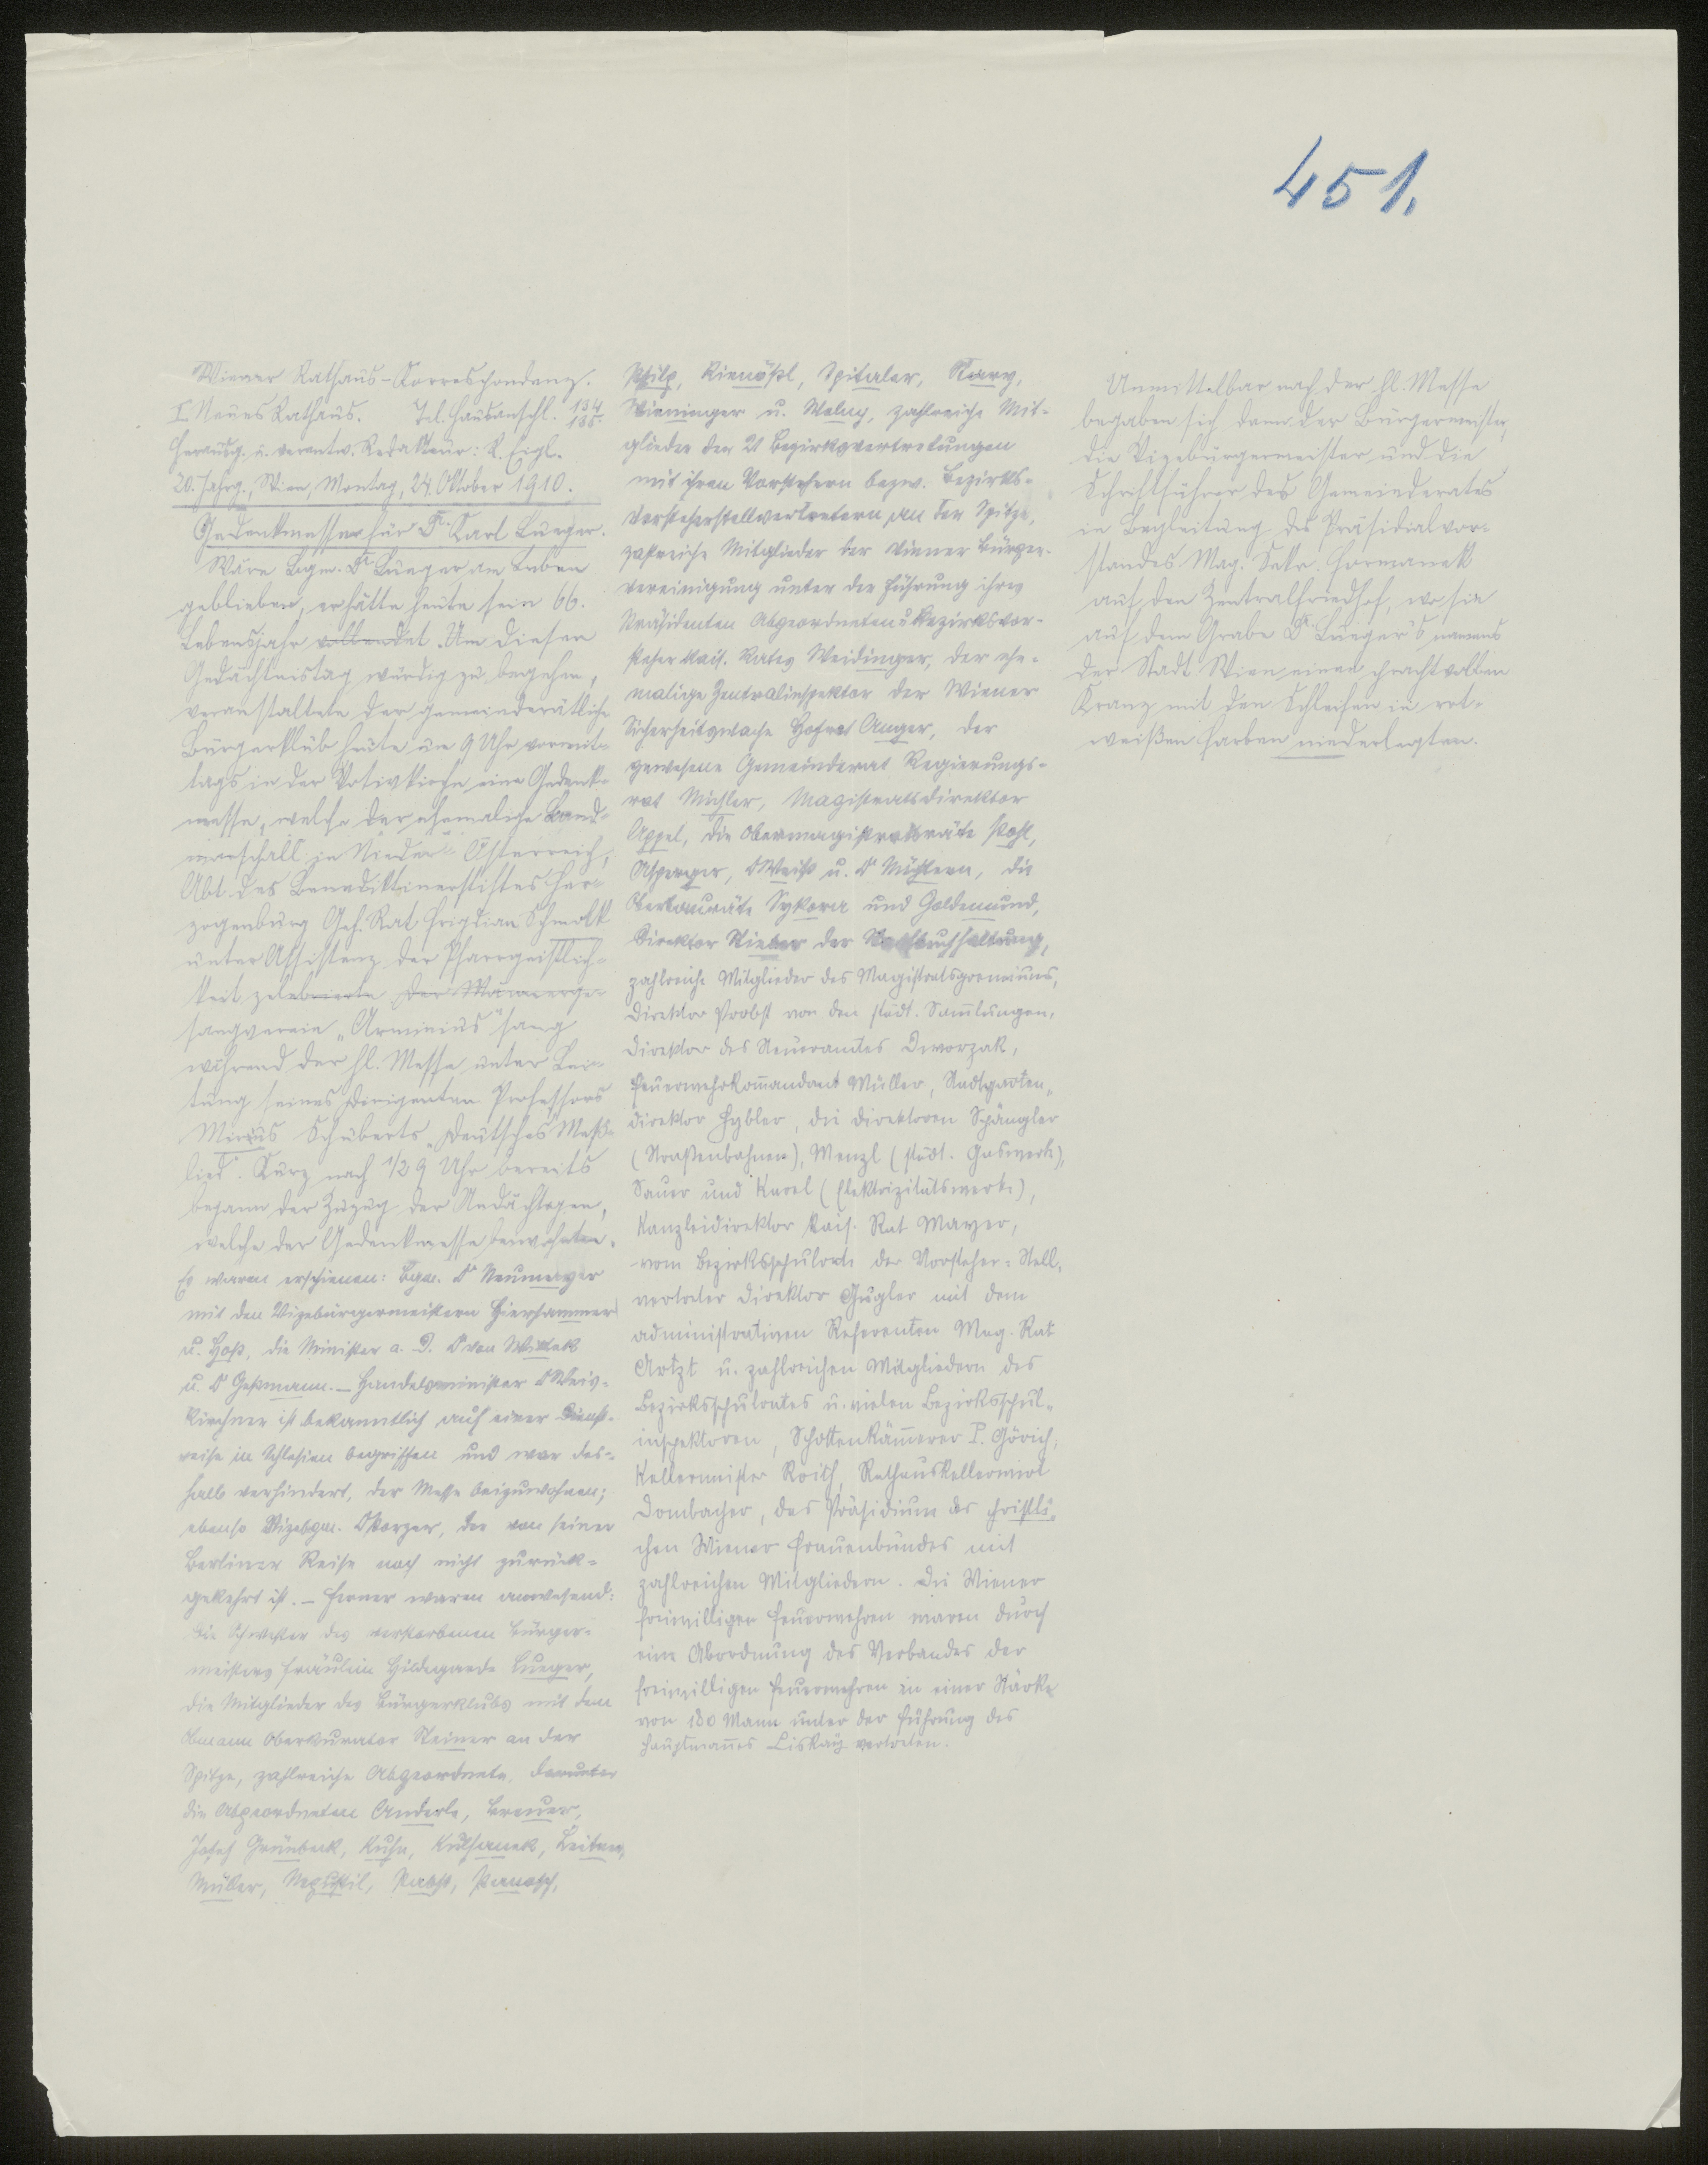 451.
Wiener Rathaus-Korrespondenz.
I. Neues Rathaus. Tel. Hausanschl. 134 135.
Herausg. u. verantw. Redakteur: R. Eigl.
20. Jahrg., Wien, Montag, 24. Oktober 1910.
Gedenkmesse für Dr. Karl Lueger.
Wäre Bgm. Dr. Lueger am Leben
geblieben, er hätte heute sein 66.
Lebensjahr vollendet. Um diesen
Gedächtnistag würdig zu begehen,
veranstaltete der gemeinderätliche
Bürgerklub heute um 9 Uhr vormit-
tags in der Votivkirche eine Gedenk-
messe, welche der ehemalige Land-
marschall in Nieder-Österreich,
Abt des Benediktinerstiftes Her-
zogenburg Geh. Rat Frigdian Schmolk
unter Assistenz der Pfarrgeistlich-
keit zelebrierte. Der Männerge-
sangverein "Arminius" sang
während der hl. Messe unter Lei-
tung seines Dirigenten Professors
Schuberts "Deutsches Meß-
lied". Kurz nach 1/2 9 Uhr bereits
begann der Zuzug der Andächtigen,
welche der Gedenkmesse beiwohnten.
Es waren erschienen: Bgm. Dr Neumayer
mit den Vizebürgermeistern Hierhammer
u. Hoß, die Minister a. D. Dr von Wittek
u. Dr Geßmann. – Handelsminister Dr Weis-
kirchner ist bekanntlich auf einer Dienst-
reise in Schlesien begriffen und war des-
halb verhindert, der Messe beizuwohnen;
ebenso Vizebgm. Dr Porzer, der von seiner
Berliner Reise noch nicht zurück-
gekehrt ist. – Ferner waren anwesend:
die Schwester des verstorbenen Bürger-
meisters Fräulein Hildegarde Lueger,
die Mitglieder des Bürgerklubs mit dem
Obmann Oberkurator Steiner an der
Spitze, zahlreiche Abgeordnete, darunter
die Abgeordneten Anderle, Breuer,
Josef Grünbeck, Kuhn, Leitner,
Müller, Nepustil, Pabst, Panosch,
Philp, Rienößl, Spitaler, Stary,
Wieninger u. Wolny, zahlreiche Mit-
glieder der 21 Bezirksvertretungen
mit ihren Vorstehern bezw. Bezirks-
vorsteherstellvertretern an der Spitze,
zahlreiche Mitglieder der Wiener Bürger-
vereinigung unter der Führung ihres
Präsidenten Abgeordneten u. Bezirksvor-
steher kais. Rates Weidinger, der ehe-
malige Zentralinspektor der Wiener
Sicherheitswache Hofrat Anger, der
gewesene Gemeinderat Regierungs-
rat Michler, Magistratsdirektor
Appel, die Obermagistratsräte Pohl,
Asperger, Dr Weiß u. Dr Nüchtern, die
Oberbauräte Sykora und Goldemund,
Direktor der Stadtbuchhaltung,
zahlreiche Mitglieder des Magistratsgremiums,
Direktor Probst von den städt. Sammlungen,
Direktor des Steueramtes Dworzak,
Feuerwehrkommandant Müller, Stadtgarten-
direktor Hybler, die Direktoren Spängler
(Straßenbahnen), Menzl (städt. Gaswerk),
Sauer und Karel (Elektrizitätswerke),
Kanzleidirektor kais. Rat Mayer,
vom Bezirksschulrate der Vorsteher-Stell-
vertreter Direktor Gugler mit dem
administrativen Referenten Mag. Rat
Artzt u. zahlreichen Mitgliedern des
Bezirksschulrates u. vielen Bezirksschul-
inspektoren, Schottenkämmerer P. Görich,
Kellermeister Roith, Rathauskellerwirt
Dombacher, das Präsidium des christli-
chen Wiener Frauenbundes mit
zahlreichen Mitgliedern. Die Wiener
freiwilligen Feuerwehren waren durch
eine Abordnung des Verbandes der
freiwilligen Feuerwehren in einer Stärke
von 180 Mann unter der Führung des
Hauptmannes Liskay vertreten.
Unmittelbar nach der hl. Messe
begaben sich dann der Bürgermeister,
die Vizebürgermeister und die
Schriftführer des Gemeinderates
in Begleitung des Präsidialvor-
standes Mag. Sekr. Formanek
auf den Zentralfriedhof, wo sie
auf dem Grabe Dr. Lueger's namens
der Stadt Wien einen prachtvollen
Kranz mit den Schleifen in rot-
weißen Farben niederlegten.